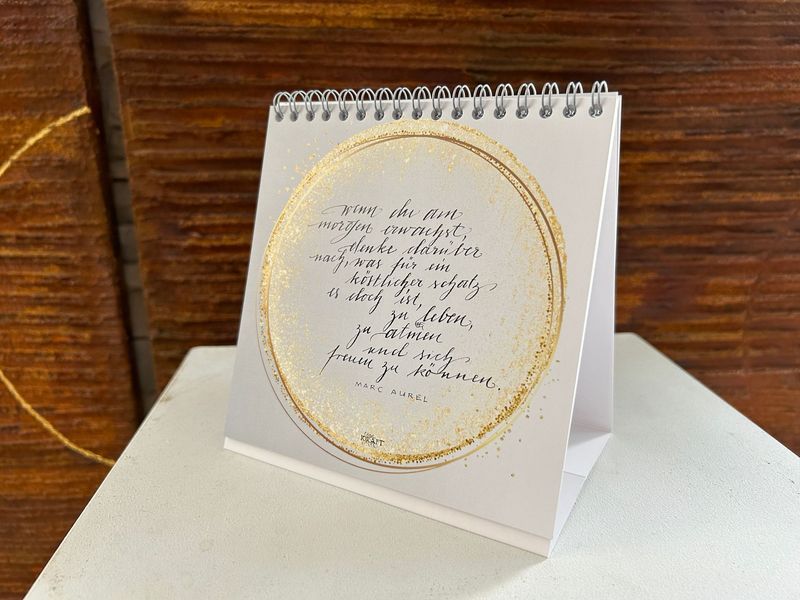 wenn du am
morgen erwachst,
denke darüber
nach, was für ein
köstlicher schatz
es doch ist,
zu leben,
zu atmen
und sich
freuen zu können.
MARC AUREL
KRAFT